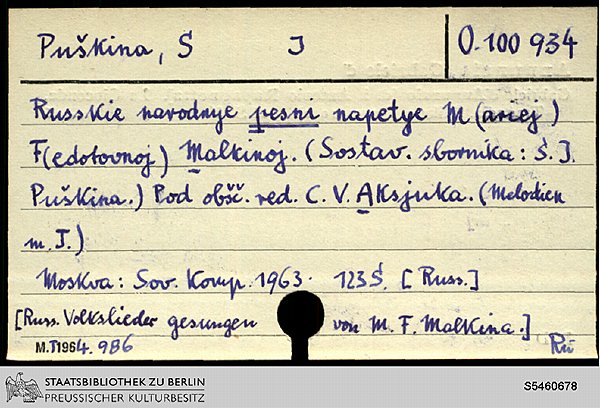 Puškina, S I O.100 934
Russkie narodnye pesni napetye M(ariej)
F(edotovnoj) Malkinoj. (Sostav. sbornika: S. I.
Puškina.) Pod obšč. red. C. V. Aksjuka. (Melodien
m. T.)
Moskva: Sov. Komp. 1963. 123 S. [Russ.]
[Russ. Volkslieder gesungen von M. F. Malkina.]
M.T1964. 986 Rü
STAATSBIBLIOTHEK ZU BERLIN
PREUSSISCHER KULTURBESITZ
S5460678